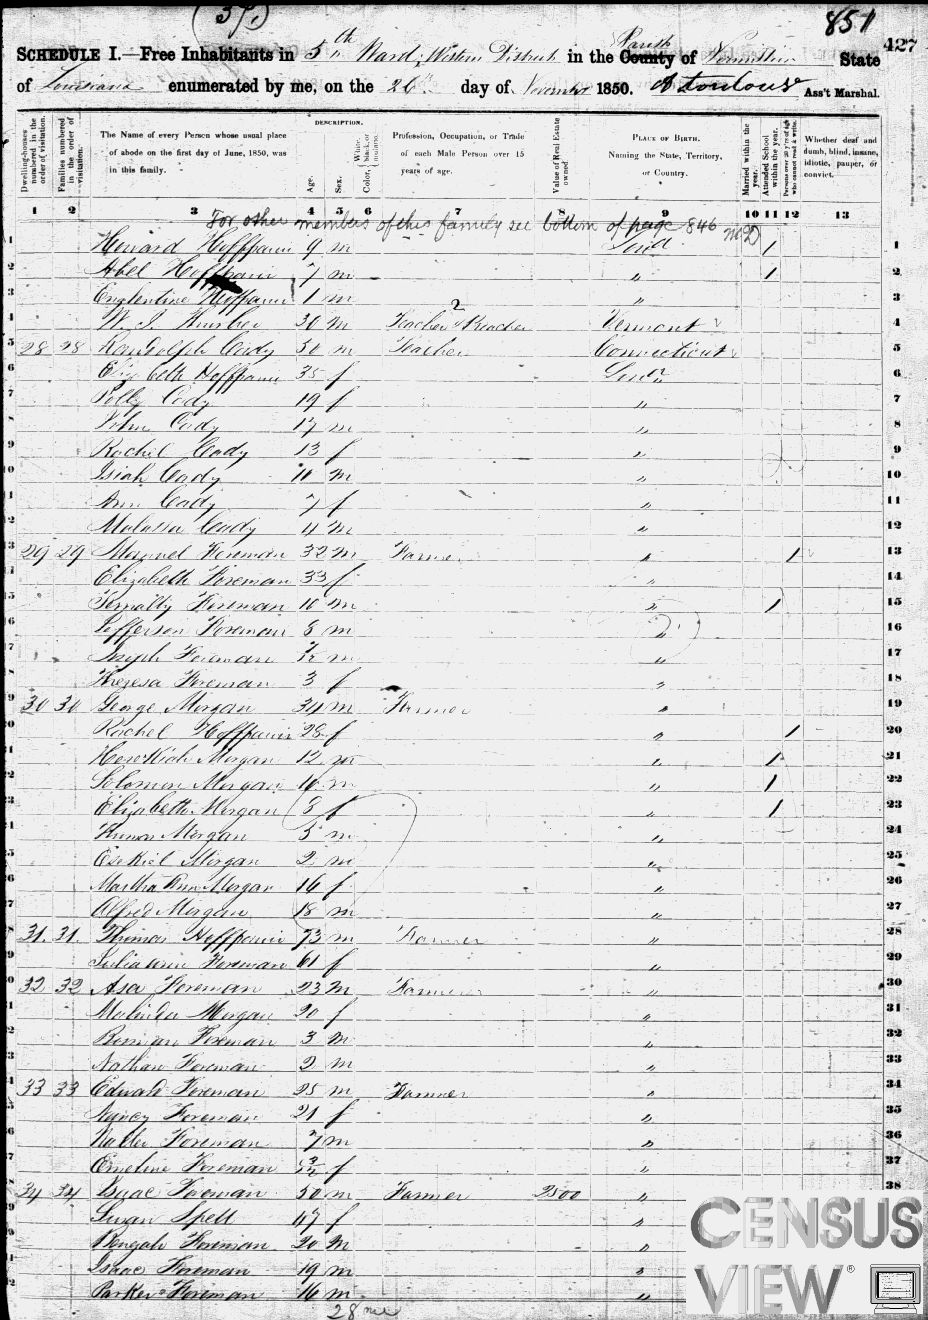 (37.)
851
427
SCHEDULE I.—Free Inhabitants in 5th Ward, Western District in the County Parish of Vermillion State
of Louisiana enumerated by me, on the 26th day of November 1850. A Toulouse Ass't Marshal.
Dwelling-houses numbered in the order of visitation.
Families numbered in the order of visitation.
The Name of every Person whose usual place of abode on the first day of June, 1850, was in this family.
DESCRIPTION.
Age.
Sex.
Color, White, black, or mulatto.
Profession, Occupation, or Trade of each Male Person over 15 years of age.
Value of Real Estate owned.
PLACE OF BIRTH. Naming the State, Territory, or Country.
Married within the year.
Attended School within the year.
Persons over 20 y'rs of age who cannot read & write.
Whether deaf and dumb, blind, insane, idiotic, pauper, or convict.
1 2 3 4 5 6 7 8 9 10 11 12 13
For other members of this family see bottom of page 846
1 Howard Hoffpauir 9 m Loui 1 1
2 Abel Hoffpauir 7 m " 1 2
3 Hoffpauir 1 m " 3
4 W. J. Thurber 30 m Teacher & Preacher 2 Vermont 4
28 28 Randolph Cady 50 m Teacher Connecticut 5
6 Elizabeth Hoffpauir 35 f 6
7 Polly Cady 19 f " 7
8 John Cady 17 m " 8
9 Rachel Cady 13 f " 9
10 Isiah Cady 10 m " 10
11 Ann Cady 7 f " 11
12 Malassa Cady 4 m " 12
29 29 Manuel Foreman 32 m Farmer " 1 13
Elizabeth Foreman 33 f " 14
Foreman 10 m " 1 15
Jefferson Foreman 8 m " 16
Joseph Foreman m " 17
Theresa Foreman 3 f " 18
30 30 George Morgan 34 m Farmer " 19
Rachel Hoffpauir 28 f " 1 20
Hesekiah Morgan 12 m " 1 21
Solomon Morgan 10 m " 1 22
Elizabeth Morgan 8 f " 1 23
Morgan 5 m " 24
Esekiel Morgan 2 m " 25
Martha Ann Morgan 16 f " 26
Alfred Morgan 18 m " 27
31. 31. Thomas Hoffpauir 73 m Farmer " 28
Julia Foreman 61 f " 29
32 32 Asa Foreman 23 m Farmer " 30
Malinda Morgan 20 f " 31
Foreman 3 m " 32
Nathan Foreman 2 m " 33
33 33 Edward Foreman 25 m Farmer " 34
Nancy Foreman 21 f " 35
Foreman 7 m " 36
Emeline Foreman 3/12 f " 37
34 34 Isaac Foreman 50 m Farmer 2500 " 38
Susan Spell 47 f "
Foreman 20 m "
Isaac Foreman 19 m "
Parker Foreman 16 m "
28
CENSUS
VIEW®